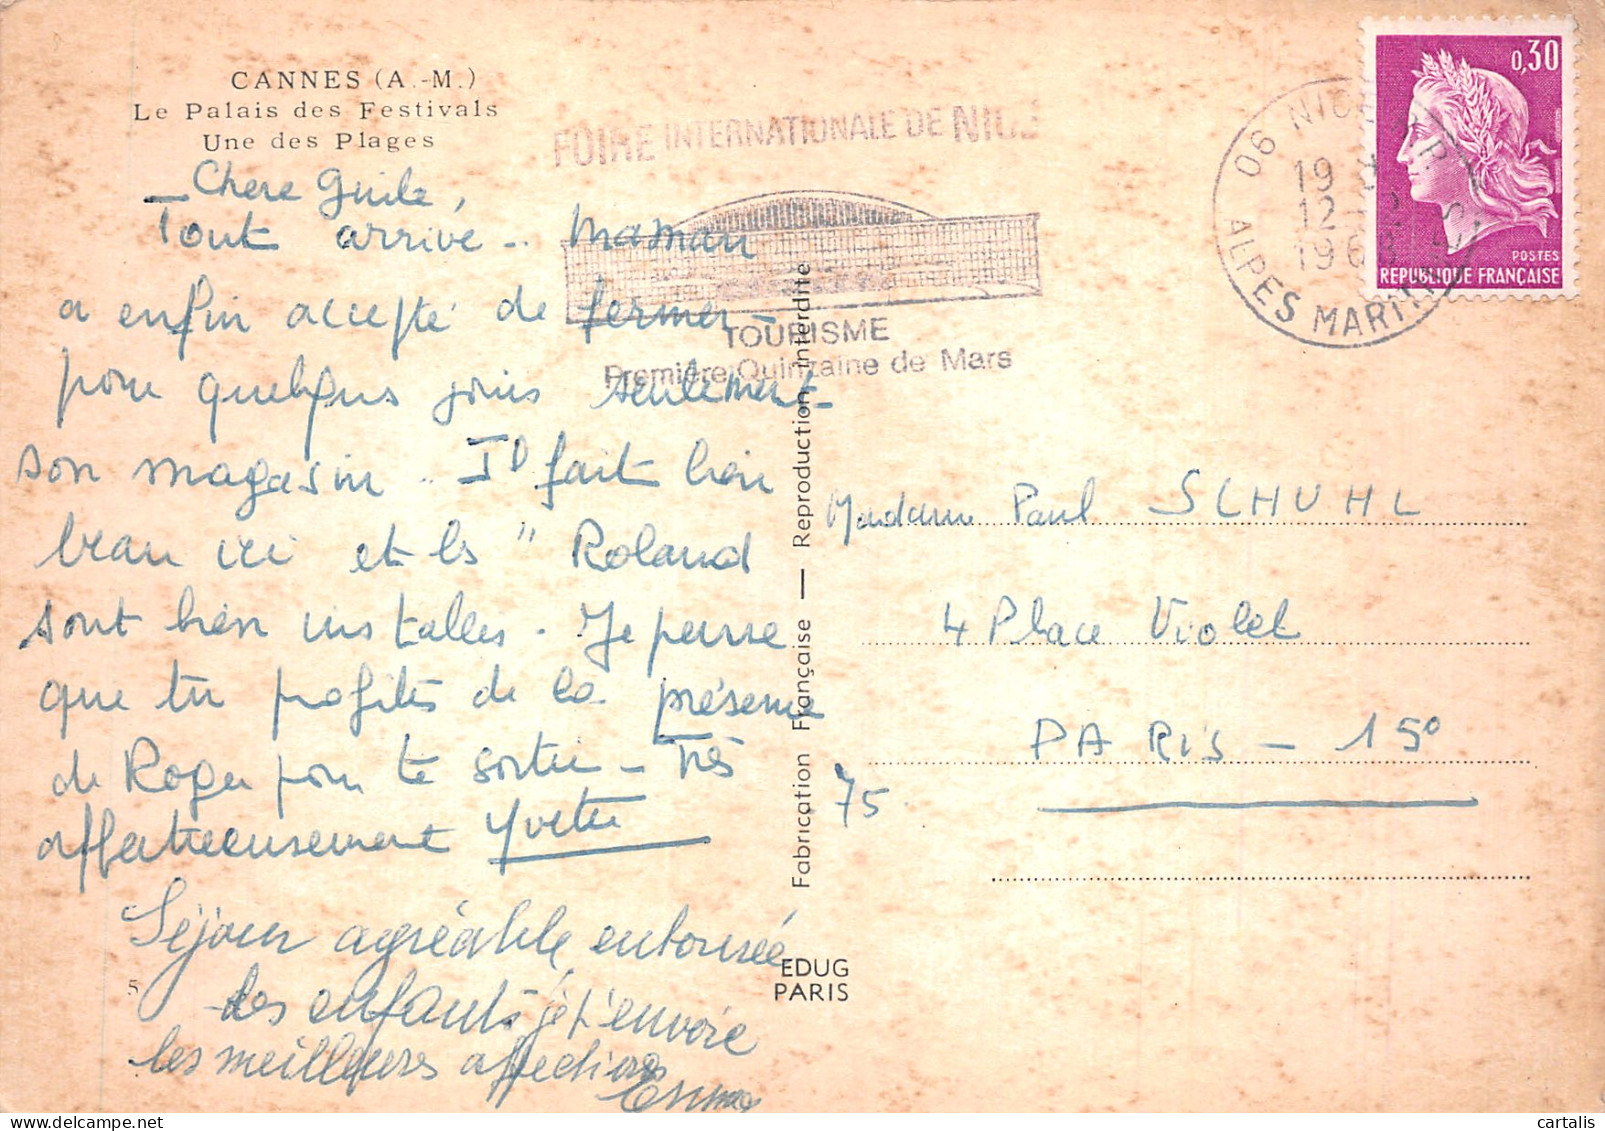 CANNES (A.-M.)
Le Palais des Festivals
Une des Plages
FOIRE INTERNATIONALE DE NICE
TOURISME
Première Quinzaine de Mars
06 NICE
19
12-2
1968
ALPES MARITIMES
0,30
POSTES
REPUBLIQUE FRANÇAISE
Chere
Tout arrive.. Maman
a enfin accepté de fermer
pour quelques jours seulement
son magasin.. Il fait bien
beau ici et les " Roland
sont bien installés. Je pense
que tu profites de la présence
de Roger pour te sortir – Très
affectueusement Yvette
Séjour agréable entourée
des enfants je t'envoie
les meilleures affections
Fabrication Française — Reproduction Interdite
Madame Paul SCHUHL
4 Place Violet
PARIS – 15°
75
5
EDUG
PARIS
cartalis